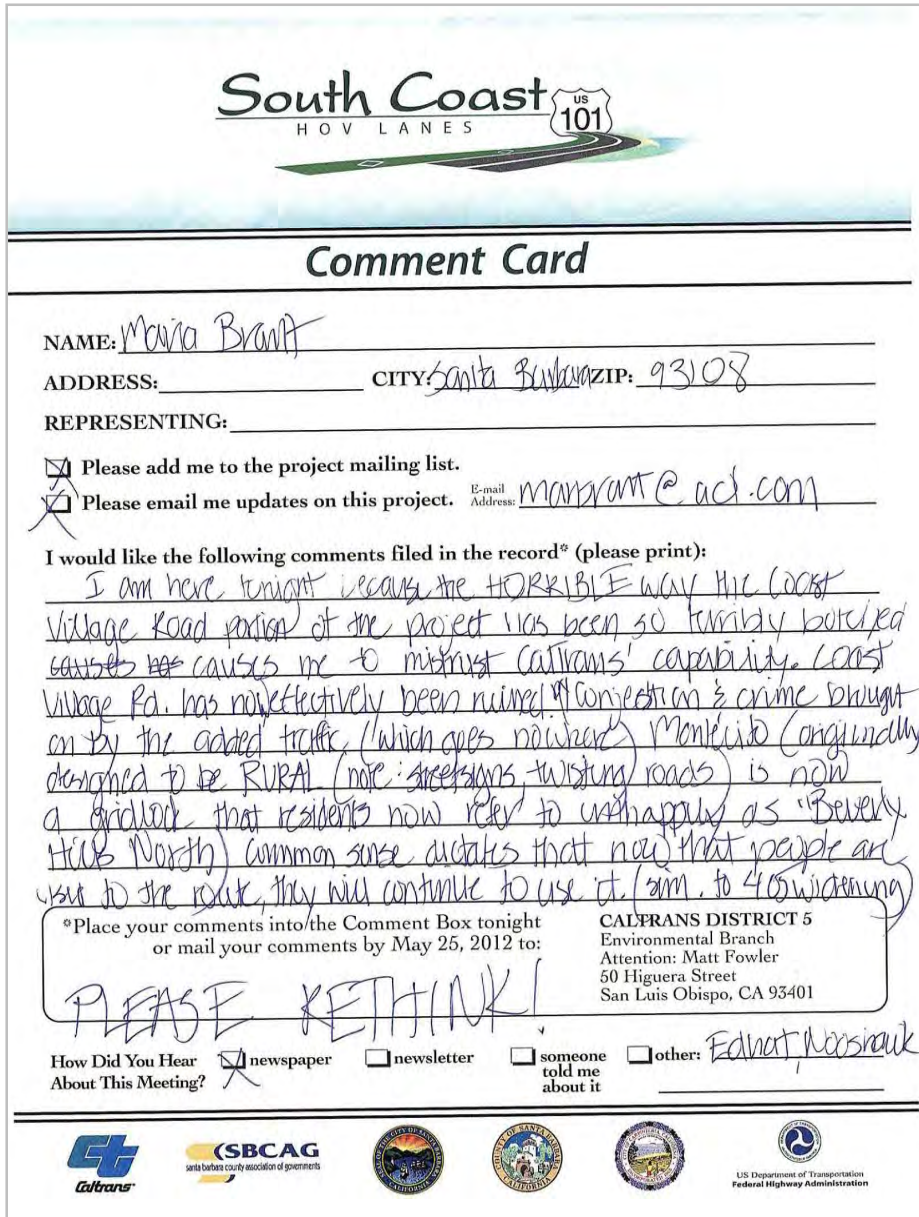 South Coast
HOV LANES
US
101
Comment Card
NAME: Maria Brant
ADDRESS: CITY: Santa Barbara ZIP: 93108
REPRESENTING:
Please add me to the project mailing list.
Please email me updates on this project. E-mail Address:
I would like the following comments filed in the record* (please print):
I am here tonight because the HORRIBLE way the Coast
Village Road portion of the project has been so terribly botched
causes has causes me to mistrust CalTrans' capability. Coast
Village Rd. has now effectively been ruined w/ conjestion & crime brought
on by the added traffic, (which goes nowhere) Montecito (originally
designed to be RURAL (note: streetsigns, twisting roads) is now
a gridlock that residents now refer to unhappily as "Beverly
Hills North) Common sense dictates that now that people are
to the route, they will continue to use it. (sim. to 405 widening)
*Place your comments into the Comment Box tonight
or mail your comments by May 25, 2012 to:
CALTRANS DISTRICT 5
Environmental Branch
Attention: Matt Fowler
50 Higuera Street
San Luis Obispo, CA 93401
PLEASE RETHINK!
How Did You Hear About This Meeting? newspaper newsletter someone told me about it other:
Caltrans
SBCAG
santa barbara county association of governments
US Department of Transportation
Federal Highway Administration